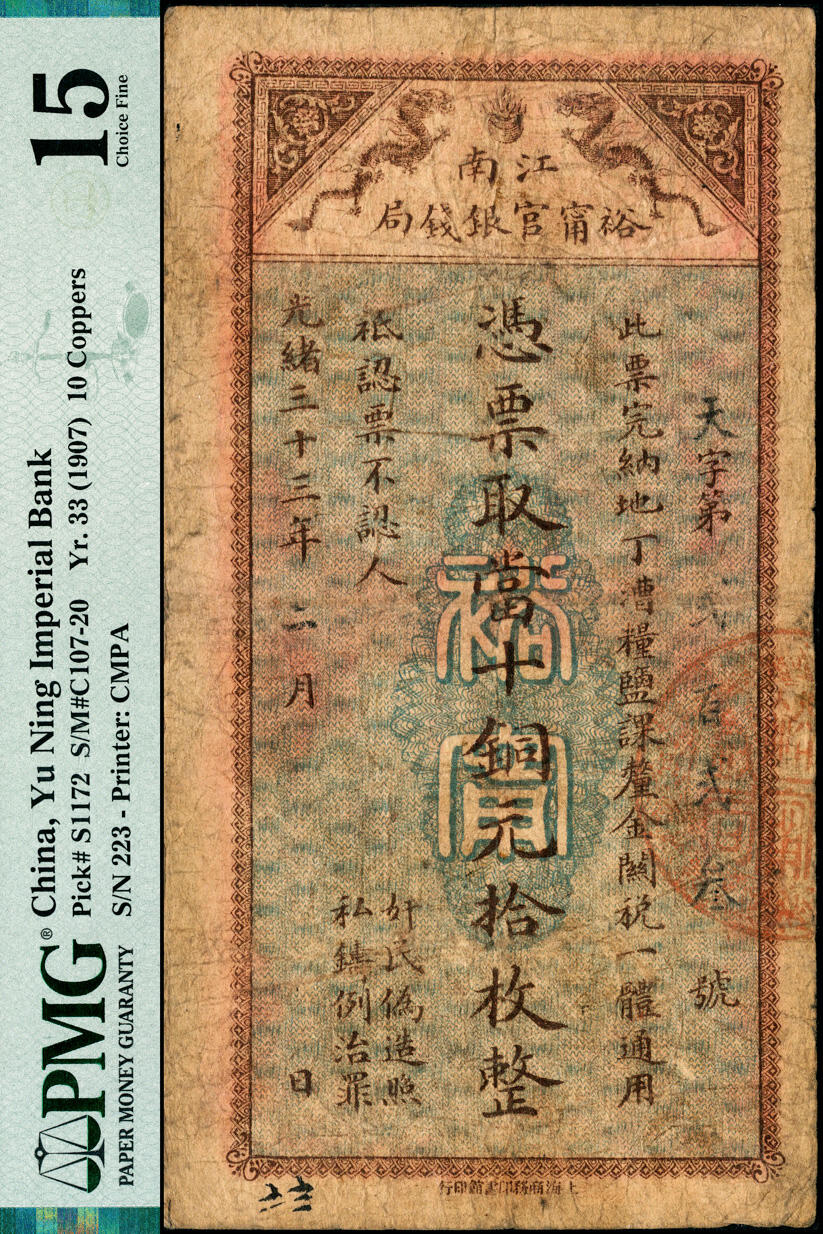 China, Yu Ning Imperial Bank
Pick# S1172 S/M#C107-20 Yr. 33 (1907) 10 Coppers
S/N 223 - Printer: CMPA
15
Choice Fine
PMG®
PAPER MONEY GUARANTY
江南
裕甯官銀錢局
天字第 百弍叄號
此票完納地丁漕糧鹽課釐金關稅一體通用
憑票取當十銅元拾枚整
裕甯
祗認票不認人
奸民偽造照
私鑄例治罪
光緒三十三年二月 日
上海商務印書館印行